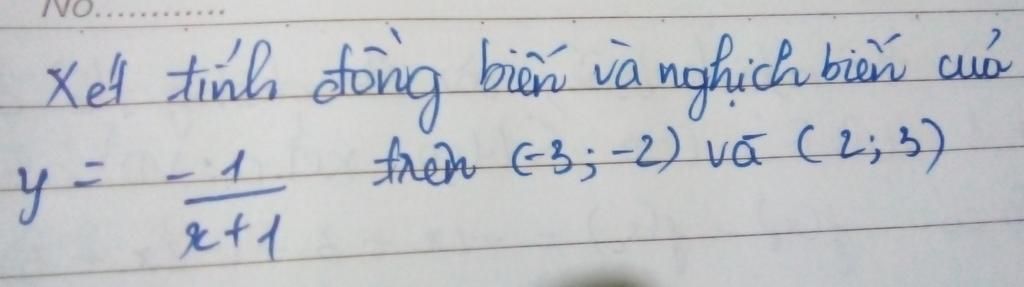 NO.............
Xét tính đồng biến và nghịch biến của
y = -1/(x+1) trên (-3; -2) và (2; 3)